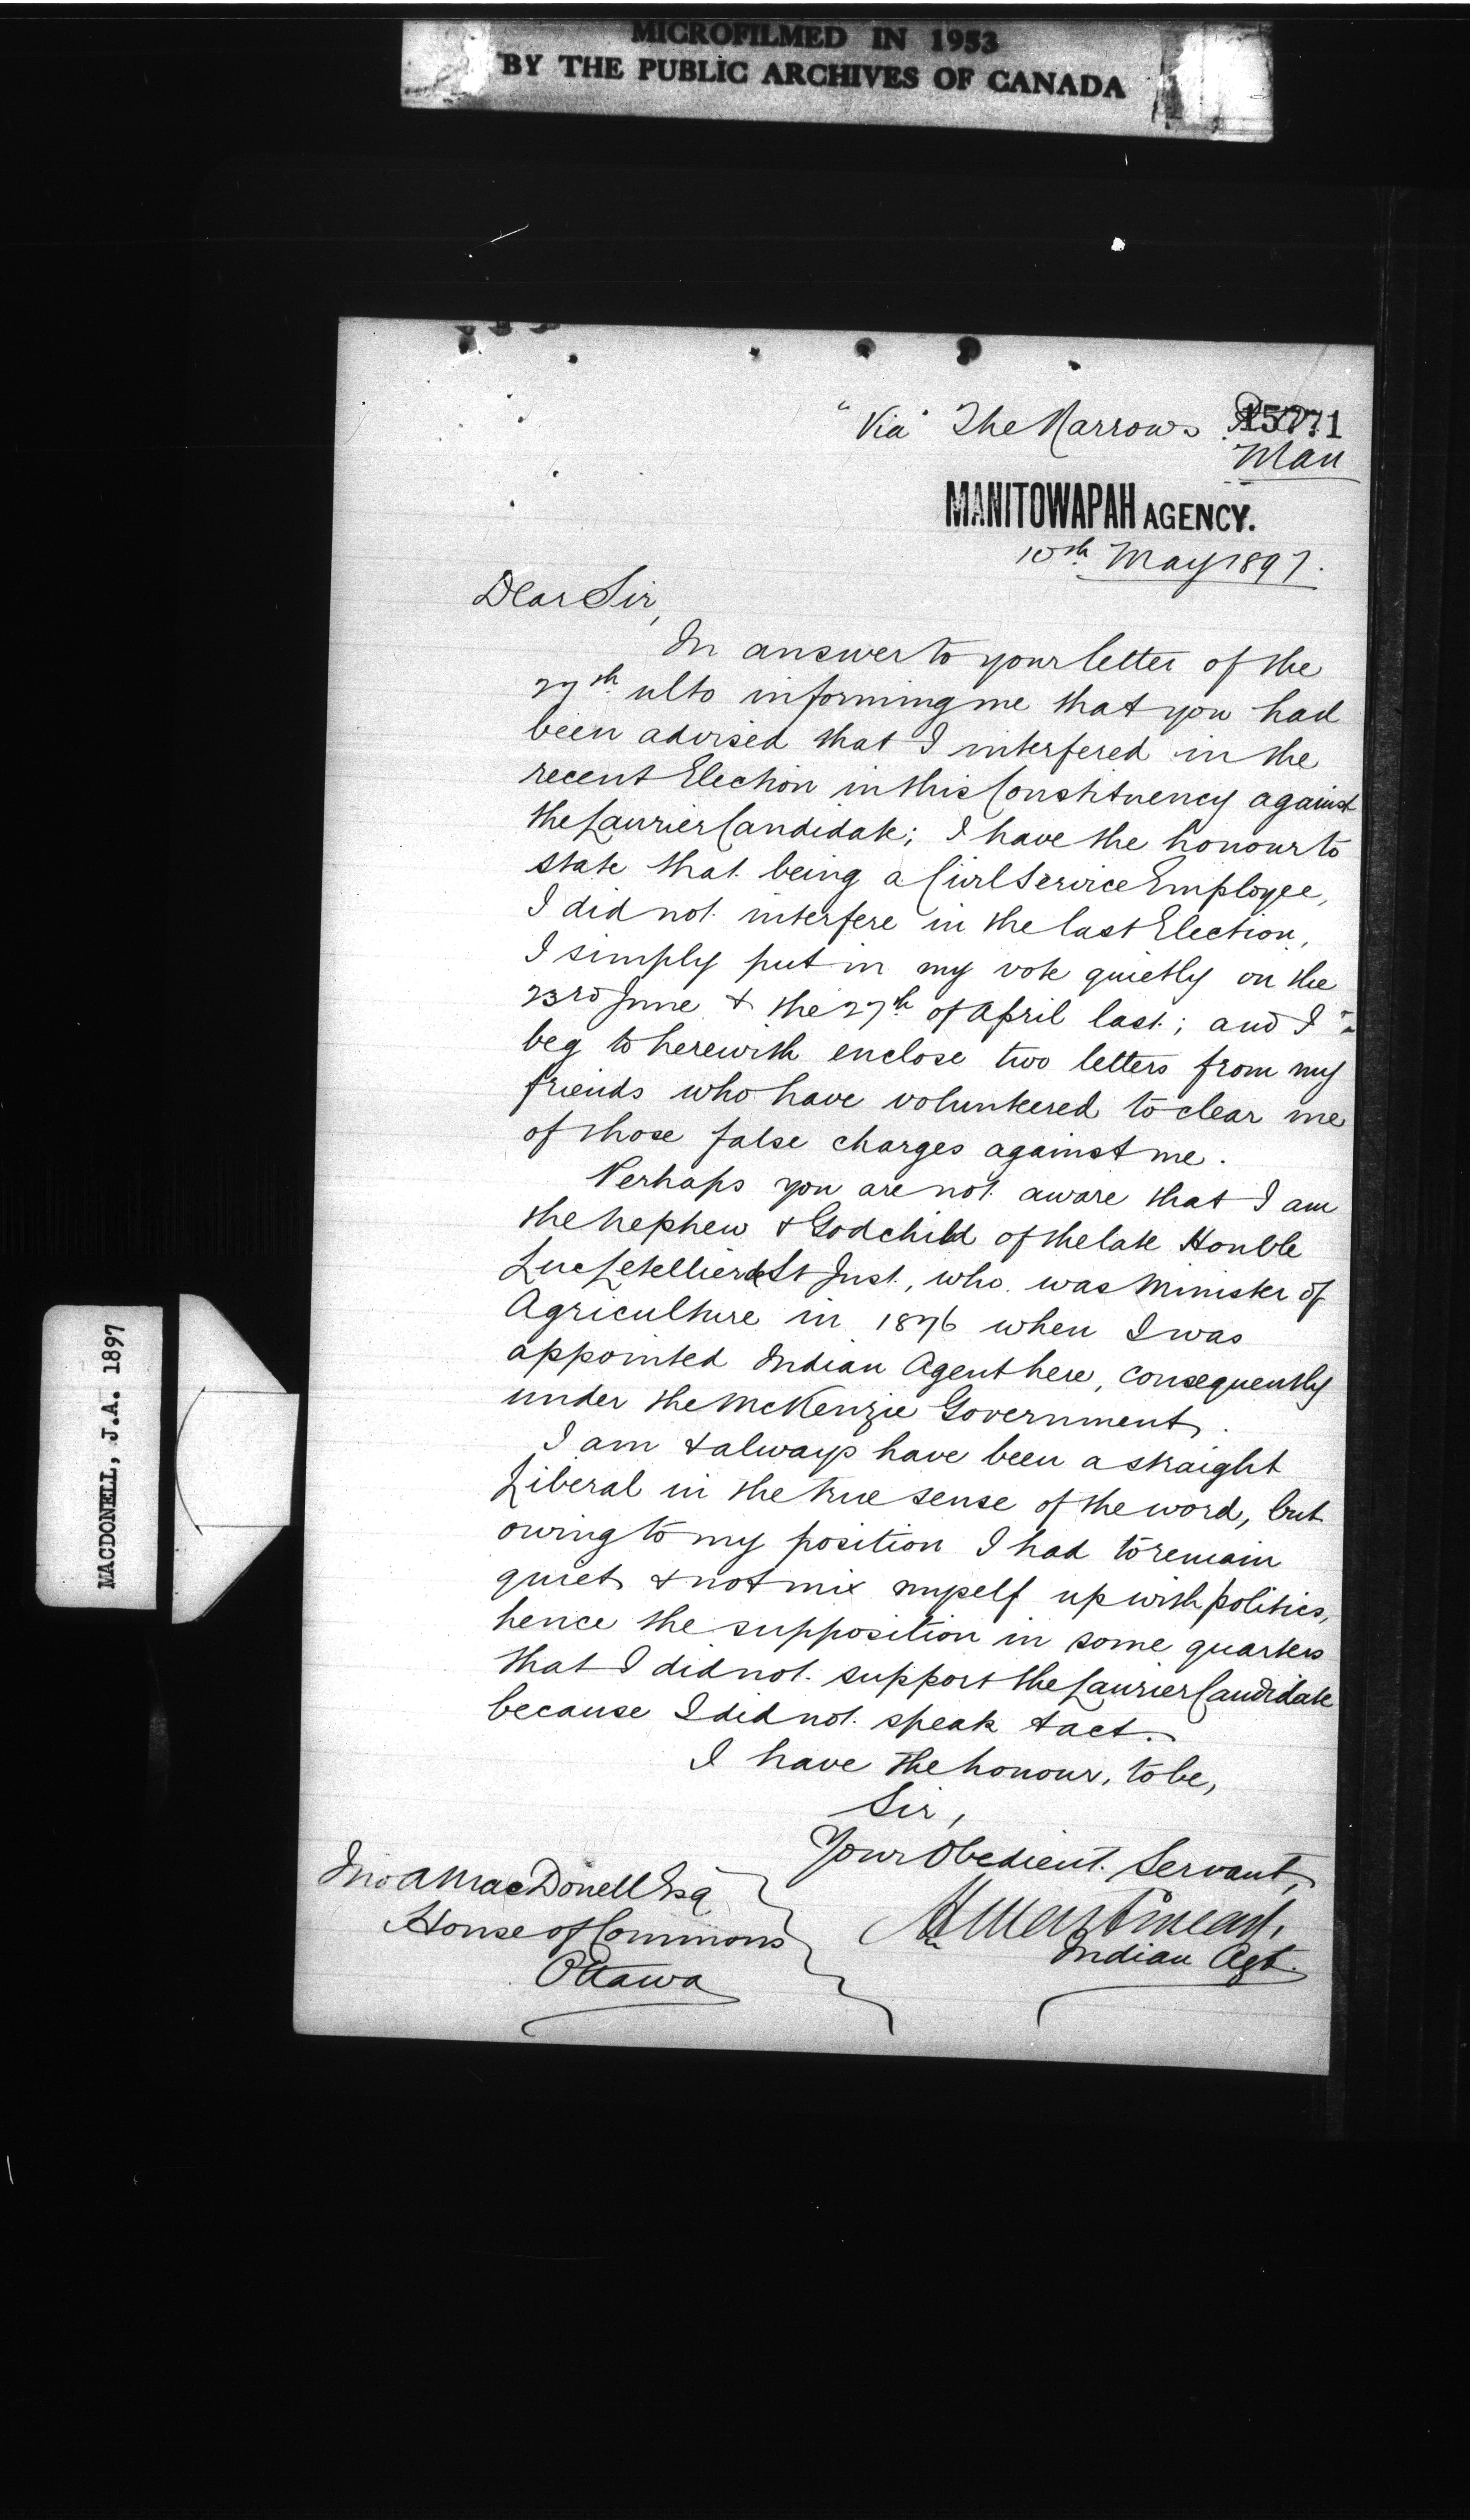 MICROFILMED IN 1953
BY THE PUBLIC ARCHIVES OF CANADA
"Via" The Narrows
15771
Man
MANITOWAPAH AGENCY.
10th May 1897.
Dear Sir,
In answer to your letter of the
27th ulto informing me that you had
been advised that I interfered in the
recent Election in this Constituency against
the Laurier Candidate; I have the honour to
state that being a Civil Service Employee,
I did not interfere in the last Election,
I simply put in my vote quietly on the
23rd June & the 27th of April last; and I
beg to herewith enclose two letters from my
friends who have volunteered to clear me
of those false charges against me.
Perhaps you are not aware that I am
the nephew & Godchild of the late Honble
Luc Letellier de St Just, who was Minister of
Agriculture in 1876 when I was
appointed Indian Agent here, consequently
under the McKenzie Government.
I am & always have been a straight
Liberal in the true sense of the word, but
owing to my position I had to remain
quiet & not mix myself up with politics,
hence the supposition in some quarters
that I did not support the Laurier Candidate
because I did not speak & act.
I have the honour, to be,
Sir,
Your Obedient Servant,
H Martineau,
Indian Agt.
Jno A MacDonell Esq
House of Commons
Ottawa
MACDONELL, J.A. 1897